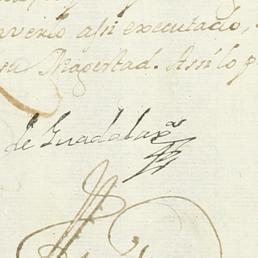 averlo asi executado,
su Magestad. Asi lo p
de Guadalaxᵃ